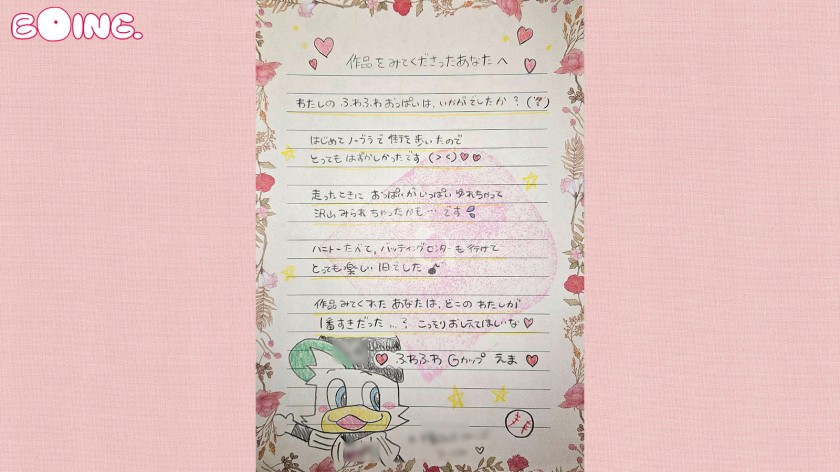 BOING.
作品をみてくださったあなたへ
わたしの ふわふわおっぱいは、いかがでしたか？(?)
はじめて ノーブラで 街を歩いたので
とっても はずかしかったです (><)
走ったときに おっぱいがいっぱい ゆれちゃって
沢山 みられちゃったかも…です
ハニトーたべて、バッティングセンターも行けて
とっても楽しい1日でした
作品みてくれた あなたは、どこの わたしが
1番すきだった…? こっそりおしえてほしいな
ふわふわ Gカップ えま